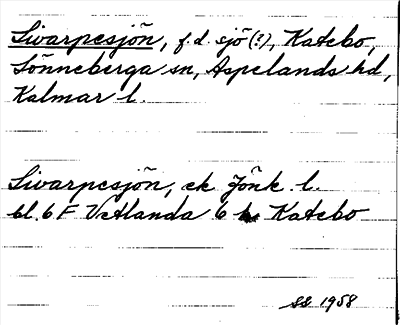 Sivarpesjön, f.d. sjö (?), Katebo,
Lönneberga sn, Aspelands hd,
Kalmar l.
Sivarpesjön, ek Jönk. l.
bl. 6 F Vetlanda 6 h Katebo
SS 1958